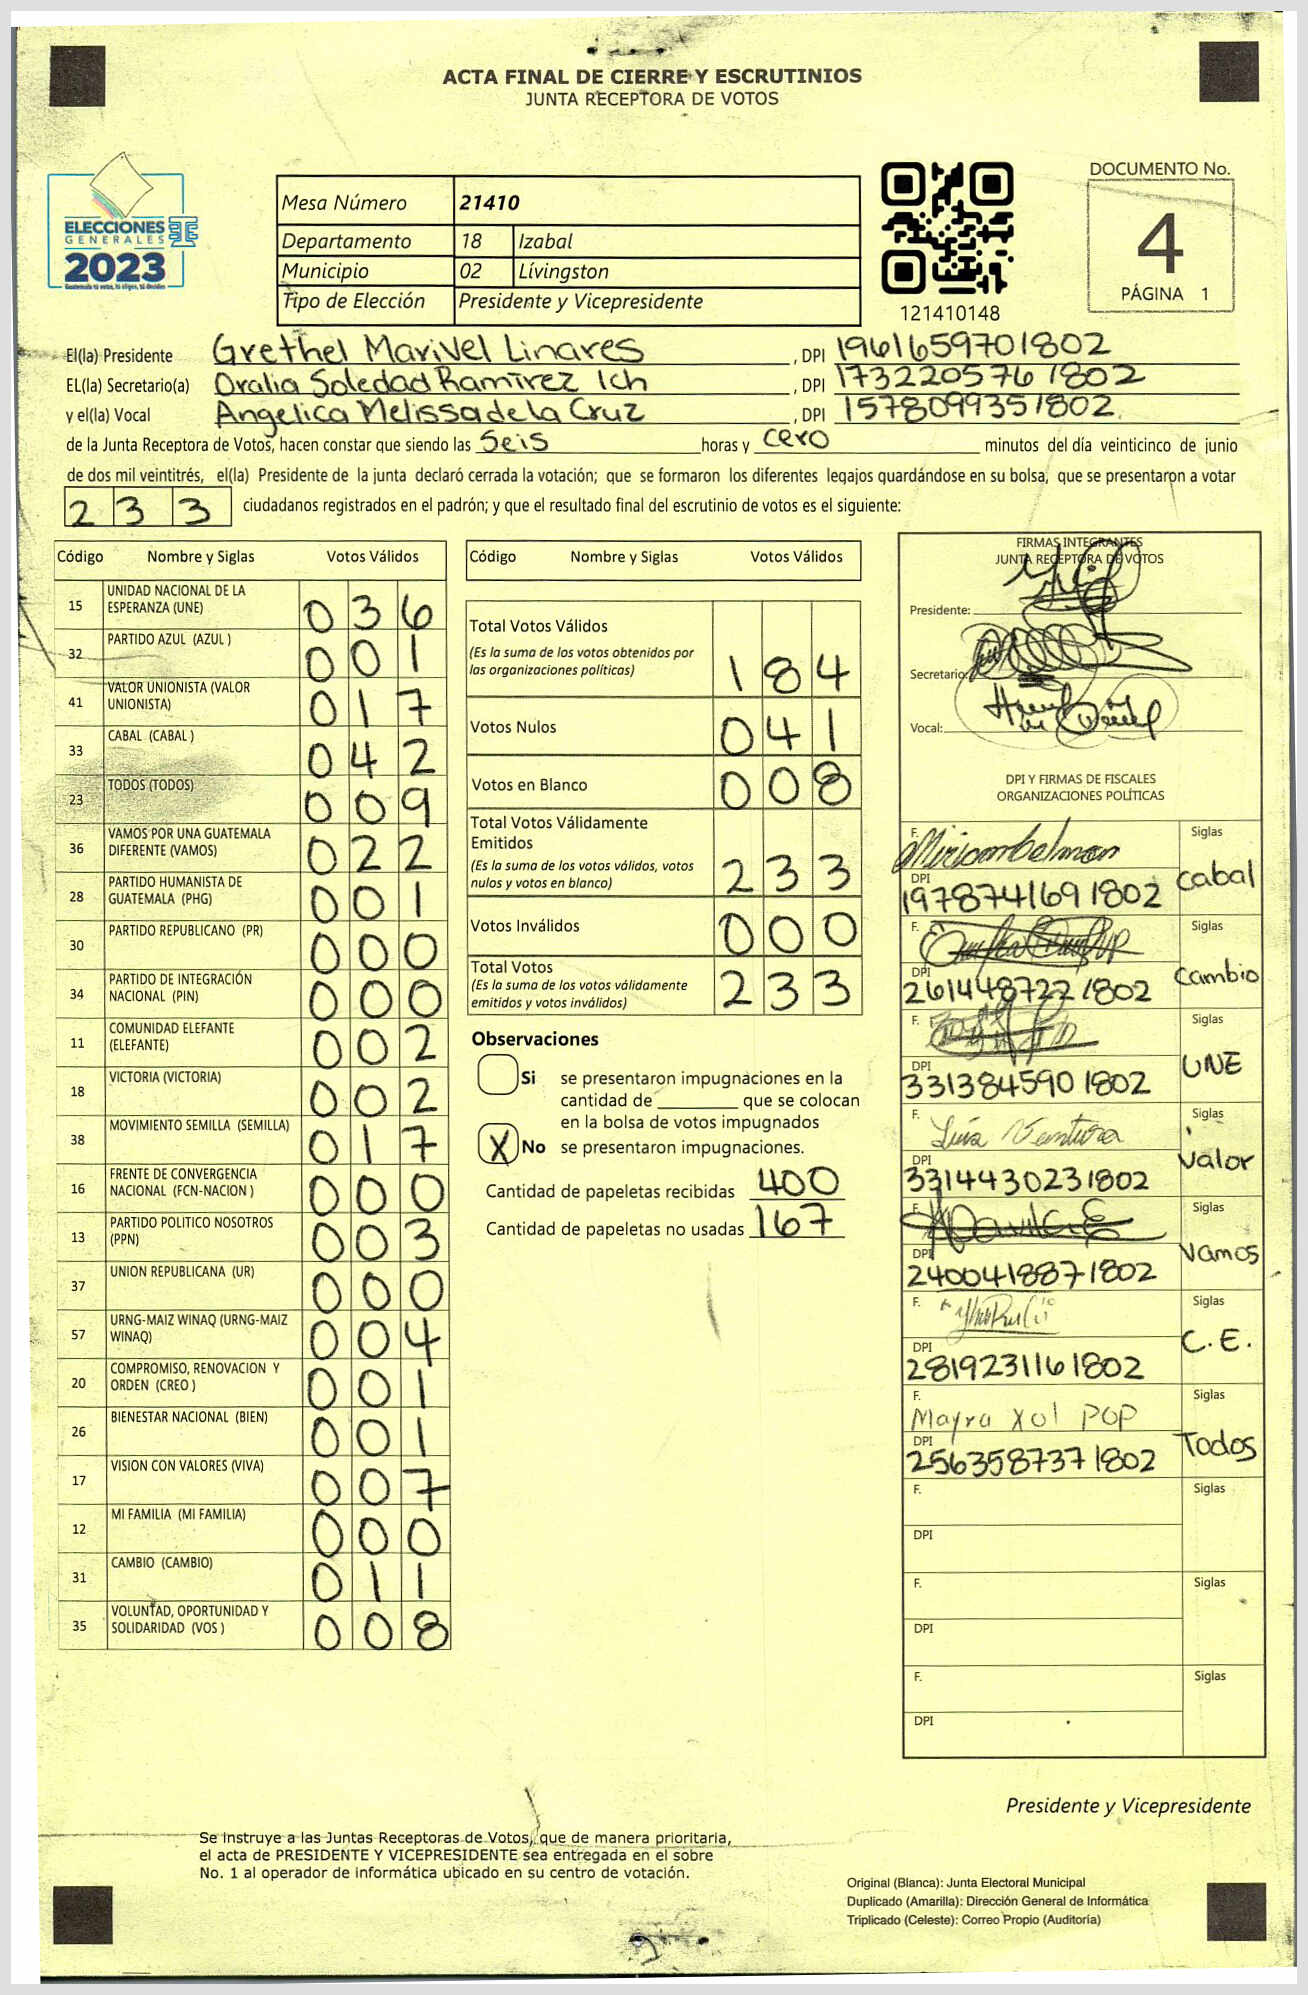 ACTA FINAL DE CIERRE Y ESCRUTINIOS
JUNTA RECEPTORA DE VOTOS
ELECCIONES
GENERALES
2023
Guatemala tú votas, tú eliges, tú decides
Mesa Número 21410
Departamento 18 Izabal
Municipio 02 Lívingston
Tipo de Elección Presidente y Vicepresidente
121410148
DOCUMENTO No.
4
PÁGINA 1
El(la) Presidente Grethel Marivel Linares, DPI 1961659701802
EL(la) Secretario(a) Oralia Soledad Ramirez Ich, DPI 1732205761802
y el(la) Vocal Angelica Melissa de la Cruz, DPI 1578099351802
de la Junta Receptora de Votos, hacen constar que siendo las Seis horas y cero minutos del día veinticinco de junio
de dos mil veintitrés, el(la) Presidente de la junta declaró cerrada la votación; que se formaron los diferentes legajos guardándose en su bolsa, que se presentaron a votar
233 ciudadanos registrados en el padrón; y que el resultado final del escrutinio de votos es el siguiente:
Código Nombre y Siglas Votos Válidos
15 UNIDAD NACIONAL DE LA ESPERANZA (UNE) 036
32 PARTIDO AZUL (AZUL ) 001
41 VALOR UNIONISTA (VALOR UNIONISTA) 017
33 CABAL (CABAL ) 042
23 TODOS (TODOS) 009
36 VAMOS POR UNA GUATEMALA DIFERENTE (VAMOS) 022
28 PARTIDO HUMANISTA DE GUATEMALA (PHG) 001
30 PARTIDO REPUBLICANO (PR) 000
34 PARTIDO DE INTEGRACIÓN NACIONAL (PIN) 000
11 COMUNIDAD ELEFANTE (ELEFANTE) 002
18 VICTORIA (VICTORIA) 002
38 MOVIMIENTO SEMILLA (SEMILLA) 017
16 FRENTE DE CONVERGENCIA NACIONAL (FCN-NACION ) 000
13 PARTIDO POLITICO NOSOTROS (PPN) 003
37 UNION REPUBLICANA (UR) 000
57 URNG-MAIZ WINAQ (URNG-MAIZ WINAQ) 004
20 COMPROMISO, RENOVACION Y ORDEN (CREO ) 001
26 BIENESTAR NACIONAL (BIEN) 001
17 VISION CON VALORES (VIVA) 007
12 MI FAMILIA (MI FAMILIA) 000
31 CAMBIO (CAMBIO) 011
35 VOLUNTAD, OPORTUNIDAD Y SOLIDARIDAD (VOS ) 008
Código Nombre y Siglas Votos Válidos
Total Votos Válidos
(Es la suma de los votos obtenidos por
las organizaciones políticas) 184
Votos Nulos 041
Votos en Blanco 008
Total Votos Válidamente
Emitidos
(Es la suma de los votos válidos, votos
nulos y votos en blanco) 233
Votos Inválidos 000
Total Votos
(Es la suma de los votos válidamente
emitidos y votos inválidos) 233
Observaciones
Si se presentaron impugnaciones en la
cantidad de ________ que se colocan
en la bolsa de votos impugnados
X No se presentaron impugnaciones.
Cantidad de papeletas recibidas 400
Cantidad de papeletas no usadas 167
FIRMAS INTEGRANTES
JUNTA RECEPTORA DE VOTOS
Presidente:
Secretario:
Vocal:
DPI Y FIRMAS DE FISCALES
ORGANIZACIONES POLÍTICAS
F. Siglas
DPI 1978741691802 Cabal
F. Siglas
DPI 2614487221802 Cambio
F. Siglas
DPI 3313845901802 UNE
F. Luis Ventura Siglas
DPI 3314430231802 Valor
F. Siglas
DPI 2400418871802 Vamos
F. Siglas
DPI 2819231161802 C.E.
F. Mayra Xol POP Siglas
DPI 2563587371802 Todos
F. Siglas
DPI
F. Siglas
DPI
F. Siglas
DPI
Presidente y Vicepresidente
Se instruye a las Juntas Receptoras de Votos, que de manera prioritaria,
el acta de PRESIDENTE Y VICEPRESIDENTE sea entregada en el sobre
No. 1 al operador de informática ubicado en su centro de votación.
Original (Blanca): Junta Electoral Municipal
Duplicado (Amarilla): Dirección General de Informática
Triplicado (Celeste): Correo Propio (Auditoría)